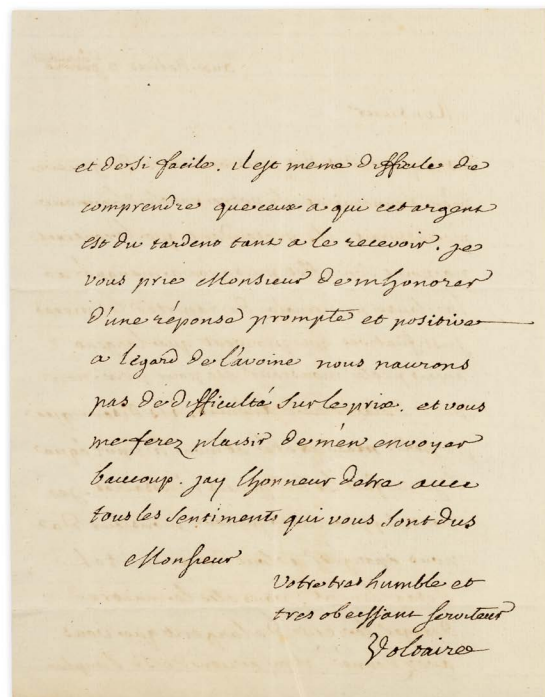 et de si facile. il est meme difficile de
comprendre que ceux a qui cet argent
est du tardent tant a le recevoir. je
vous prie Monsieur de mhonorer
d'une réponse prompte et positive
a legard de l'avoine nous naurons
pas de difficulté sur le prix. et vous
me ferez plaisir de m'en envoyer
baucoup. jay lhonneur detre avec
tous les sentiments qui vous sont dus
Monsieur
votre tras humble et
tres obeissant serviteur
Voltaire